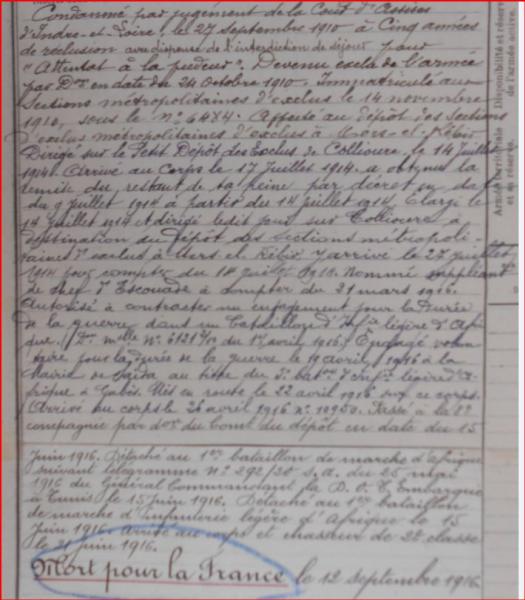 Condamné par jugement de la Cour d'Assises
d'Indre-et-Loire, le 27 septembre 1910 à Cinq années
de réclusion avec dispense de l'interdiction de séjour pour
"Attentat à la pudeur". Devenu exclu de l'armée
par Don en date du 24 octobre 1910. Immatriculé aux
sections métropolitaines d'exclus le 14 novembre
1910, sous le No 6484. Affecté au dépôt des sections
d'exclus métropolitaines d'exclus à Mers-el-Kébir
Dirigé sur le Petit Dépôt des Exclus de Collioure, le 14 Juillet
1914. Arrivé au Corps le 17 Juillet 1914. a obtenu la
remise du restant de sa peine par décret en date
du 9 juillet 1914 à partir du 14 juillet 1914. Elargi le
14 juillet 1914 et dirigé ledit jour sur Collioure à
destination du Dépôt des sections métropoli-
taines d'exclus à Mers el Kébir y arrivé le 27 juillet
1914 pour compter du 14 juillet 1913. Nommé suppléant
de chef d'Escouade à compter du 21 mars 1916.
Autorisé à contracter un engagement pour la durée
de la guerre dans un bataillon d'Infie légère d'Afri-
que. (Don mlle No du 1er avril 1916) Engagé volon-
taire pour la durée de la guerre le 19 avril 1916 à la
Mairie de Saïda au titre du 3e baton d'Infie légère d'A-
frique à Gabès. Mis en route le 22 avril 1916 sur ce corps.
Arrivé au corps le 26 avril 1916 No 10950. Passé à la 8e
compagnie par don du Comt du dépôt en date du 15
Juin 1916. Détaché au 1er bataillon de marche d'Afrique
suivant télégramme No 292/30 s.a. du 25 mai
1916 du Général Commandant la D.O.T. Embarqué
à Tunis le 15 juin 1916. Détaché au 1er bataillon
de marche d'infanterie légère d'Afrique le 15
Juin 1916. Arrivé au corps et chasseur de 2e classe
le 21 juin 1916.
Mort pour la France le 12 septembre 1916.
Disponibilité et réserve
de l'armée active.
Armée territoriale
et sa réserve.